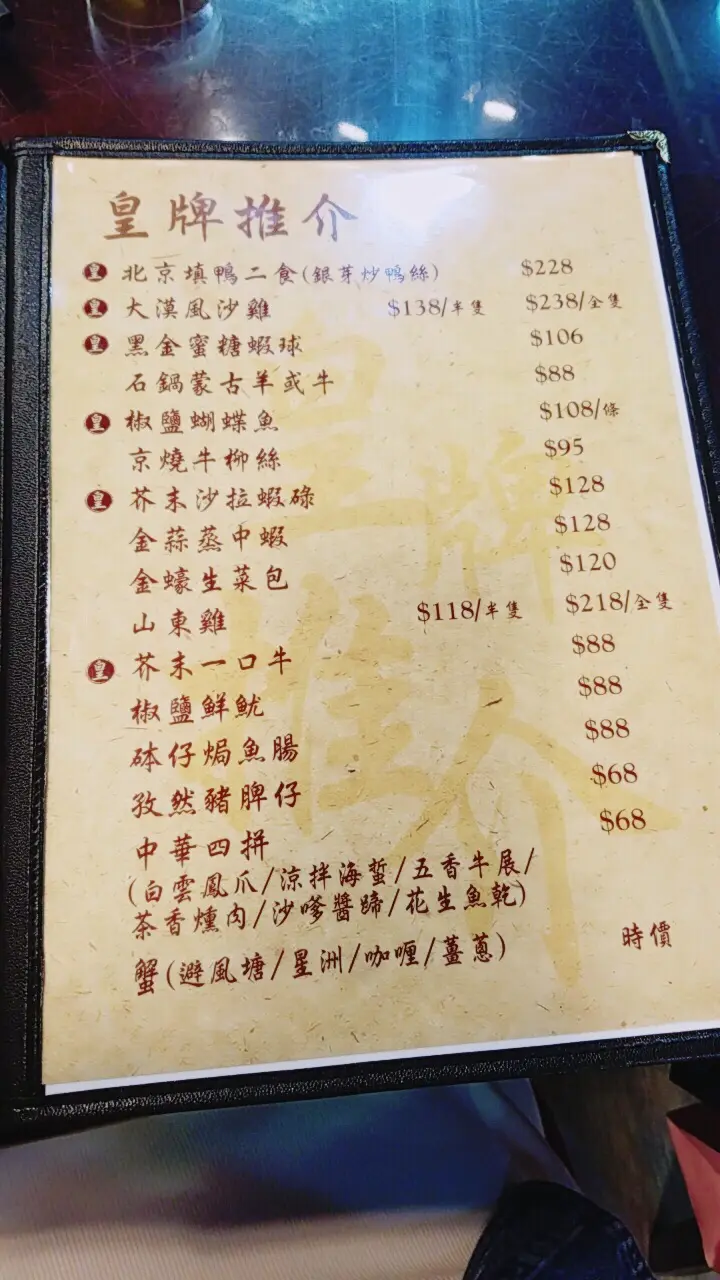 皇牌推介
皇 北京填鴨二食(銀芽炒鴨絲) $228
皇 大漠風沙雞 $138/半隻 $238/全隻
皇 黑金蜜糖蝦球 $106
石鍋蒙古羊或牛 $88
皇 椒鹽蝴蝶魚 $108/條
京燒牛柳絲 $95
皇 芥末沙拉蝦碌 $128
金蒜蒸中蝦 $128
金蠔生菜包 $120
山東雞 $118/半隻 $218/全隻
皇 芥末一口牛 $88
椒鹽鮮魷 $88
砵仔焗魚腸 $88
孜然豬脾仔 $68
中華四拼 $68
(白雲鳳爪/涼拌海蜇/五香牛展/
茶香燻肉/沙嗲醬蹄/花生魚乾)
蟹(避風塘/星洲/咖喱/薑蔥) 時價
皇牌
推介